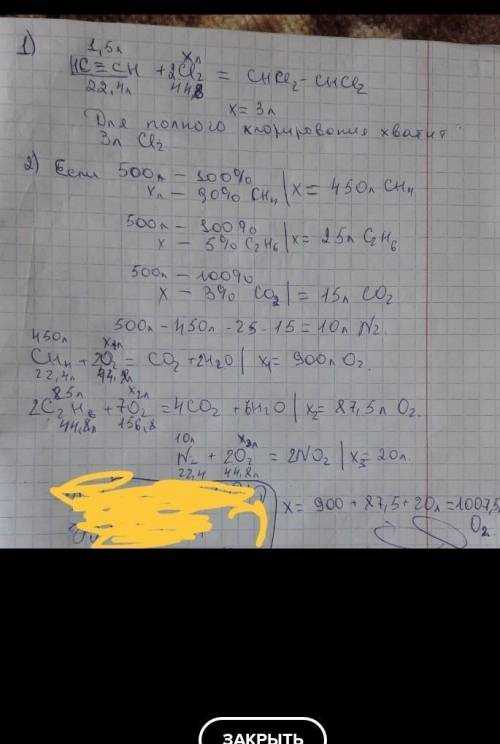 1)
1,5л хл
HC≡CH + 2Cl₂ = CHCl₂-CHCl₂
22,4л 44,8
x = 3л
Для полного хлорирования хватит
3л Cl₂
2) Если 500л — 100%
xл — 90% CH₄ | x = 450л CH₄
500л — 100%
x — 5% C₂H₆ | x = 25л C₂H₆
500л — 100%
x — 3% CO₂ | = 15л CO₂
500л - 450л - 25 - 15 = 10л N₂
450л x₁л
CH₄ + 2O₂ = CO₂ + 2H₂O | x₁ = 900л O₂.
22,4л 44,8л
25л x₂л
2C₂H₆ + 7O₂ = 4CO₂ + 6H₂O | x₂ = 87,5л O₂.
44,8л 156,8
10л x₃л
N₂ + 2O₂ = 2NO₂ | x₃ = 20л.
22,4 44,8л
x = 900 + 87,5 + 20л = 1007,5
O₂
ЗАКРЫТЬ